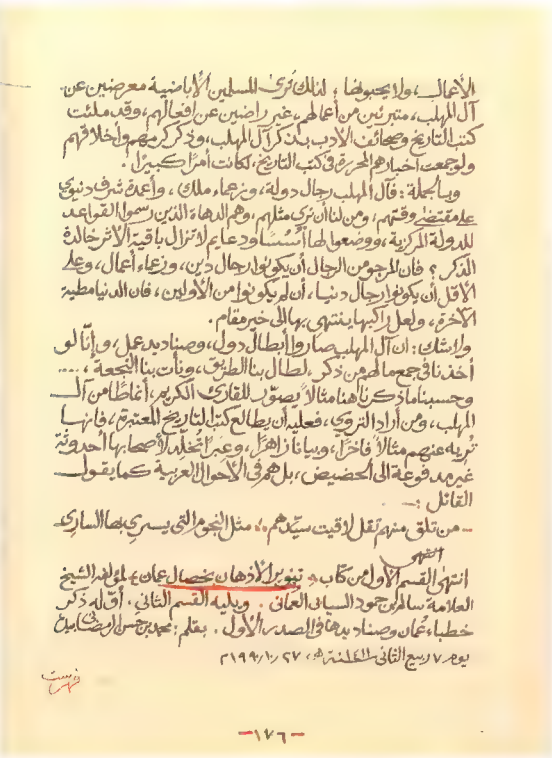 الأعمال، ولا يحبونها؛ لذلك ترى المسلمين الأباضية معرضين عن
آل المهلب، متبرئين من أعمالهم، غير راضين عن افعالهم، وقد ملئت
كتب التاريخ وصحائف الأدب بذكر آل المهلب، وذكر كرمهم وأخلاقهم
ولو جمعت أخبارهم المحررة في كتب التاريخ، لكانت أمرًا كبيرًا.
وبالجملة: فآل المهلب رجال دولة، وزعماء ملك، وأعمدة شرف دنيوي
على مقتضى وقتهم، ومن لنا أن نرى مثلهم، وهم الدهاة الذين رسموا القواعد
للدولة المركزية، ووضعوا لها أسسًا ودعايم لا تزال باقية الأثر خالدة
الذكر؟ فان المرجو من الرجال أن يكونوا رجال دين، وزعماء أعمال، وعلى
الأقل أن يكونوا رجال دنيا، أن لم يكونوا من الأولين، فان الدنيا مطية
الآخرة، ولعل راكبها ينتهي بها إلى خير مقام.
ولا شك: ان آل المهلب صاروا أبطال دول، وصناديد عمل، وإنّا لو
أخذنا في جمع ما لهم من ذكر، لطال بنا الطريق، ونأت بنا النجعة، ....
وحسبنا ما ذكرنا هنا مثالًا يصوّر للقارئ الكريم، أنماطًا من آل
المهلب، ومن أراد التروي، فعليه أن يطالع كتب التاريخ المعتبرة، فإنها
تريه عنهم مثالًا فاخرًا، وبيانا زاهرًا، وعبرًا تخلد لأصحابها أحدوثة
غير مدفوعة الى الحضيض، بل هم في الأحوال العربية كما يقول
القائل :-
- من تلق منهم تقل لاقيت سيّدهم ؞ مثل النجوم التي يسري بها الساري
انتهى
انتهى القسم الأول من كتاب «تنوير الأذهان بخصال عمان» لمؤلفه الشيخ
العلامة سالم بن حمود السيابي العماني. ويليه القسم الثاني، أوّله ذكر
خطباء عُمان وصناديدها في الصدر الأول. بقلم: محمد بن حسن الرمضاني
يوم ٧ ربيع الثاني ١٤١١ سنة هـ، ٢٧/١٠/١٩٩٠م
فهرست
-١٧٦-